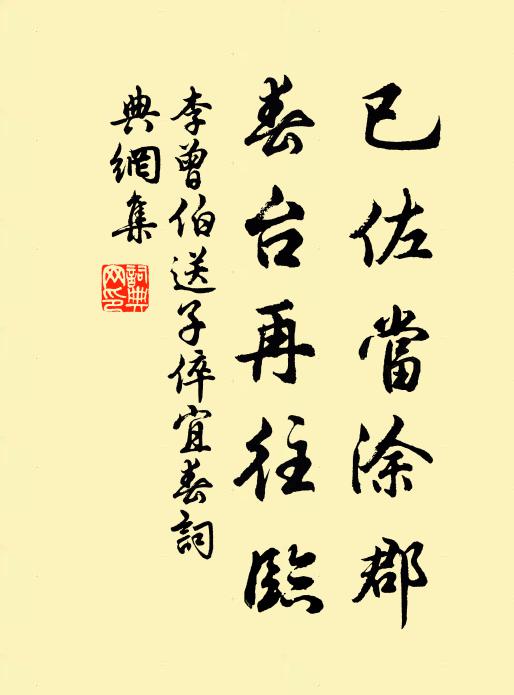 已佐當涂郡
春台再往臨
李曾伯送子倅宜春詞
典網集
詞典网印